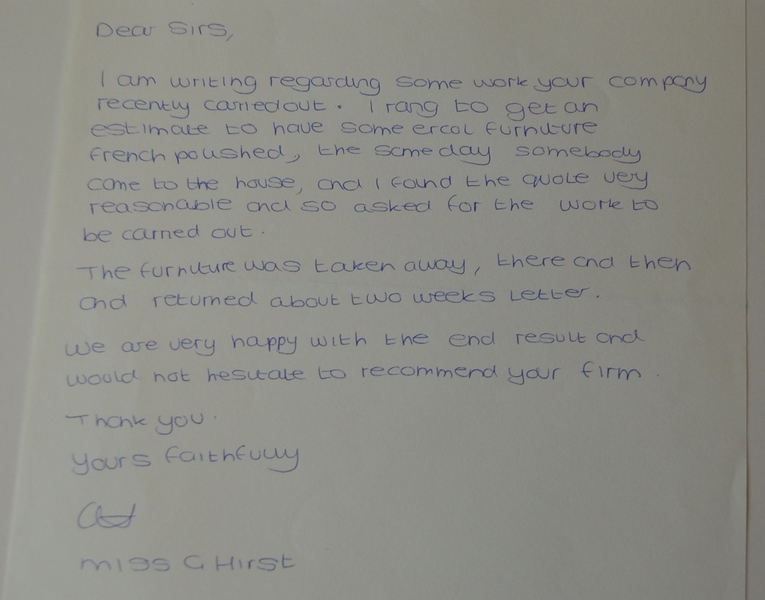 Dear Sirs,
I am writing regarding some work your company
recently carried out. I rang to get an
estimate to have some ercol furniture
french polished, the same day somebody
came to the house, and I found the quote very
reasonable and so asked for the work to
be carried out.
The furniture was taken away, there and then
and returned about two weeks letter.
We are very happy with the end result and
would not hesitate to recommend your firm.
Thank you.
Yours faithfully
Miss G Hirst